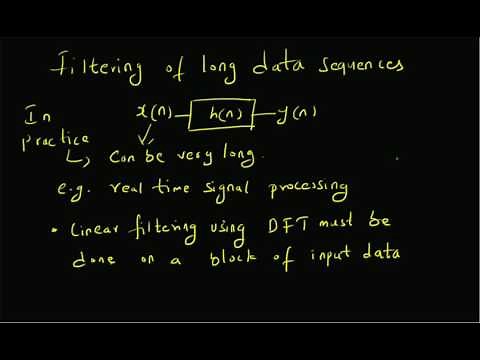 Filtering of long data sequences
In practice
x(n) h(n) y(n)
can be very long.
e.g. real time signal processing
• Linear filtering using DFT must be
done on a block of input data